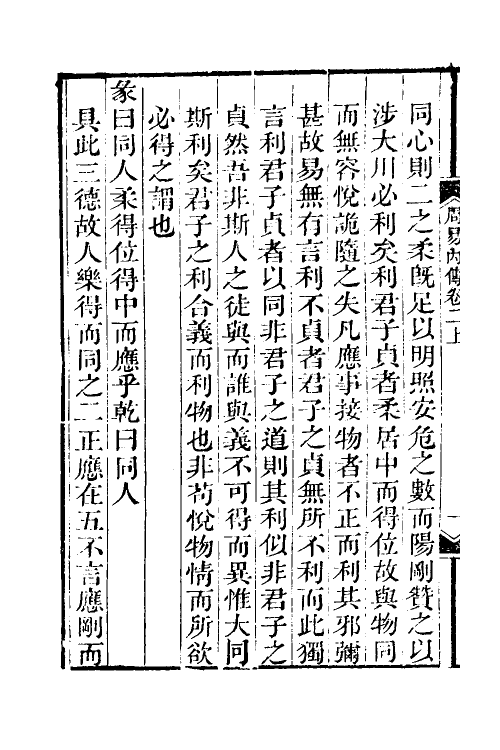 周易內傳卷二上
同心則二之柔旣足以明照安危之數而陽剛贊之以
涉大川必利矣利君子貞者柔居中而得位故與物同
而無容悅詭隨之失凡應事接物者不正而利其邪彌
甚故易無有言利不貞者君子之貞無所不利而此獨
言利君子貞者以同非君子之道則其利似非君子之
貞然吾非斯人之徒與而誰與義不可得而異惟大同
斯利矣君子之利合義而利物也非苟悅物情而所欲
必得之謂也
彖曰同人柔得位得中而應乎乾曰同人
具此三德故人樂得而同之二正應在五不言應剛而